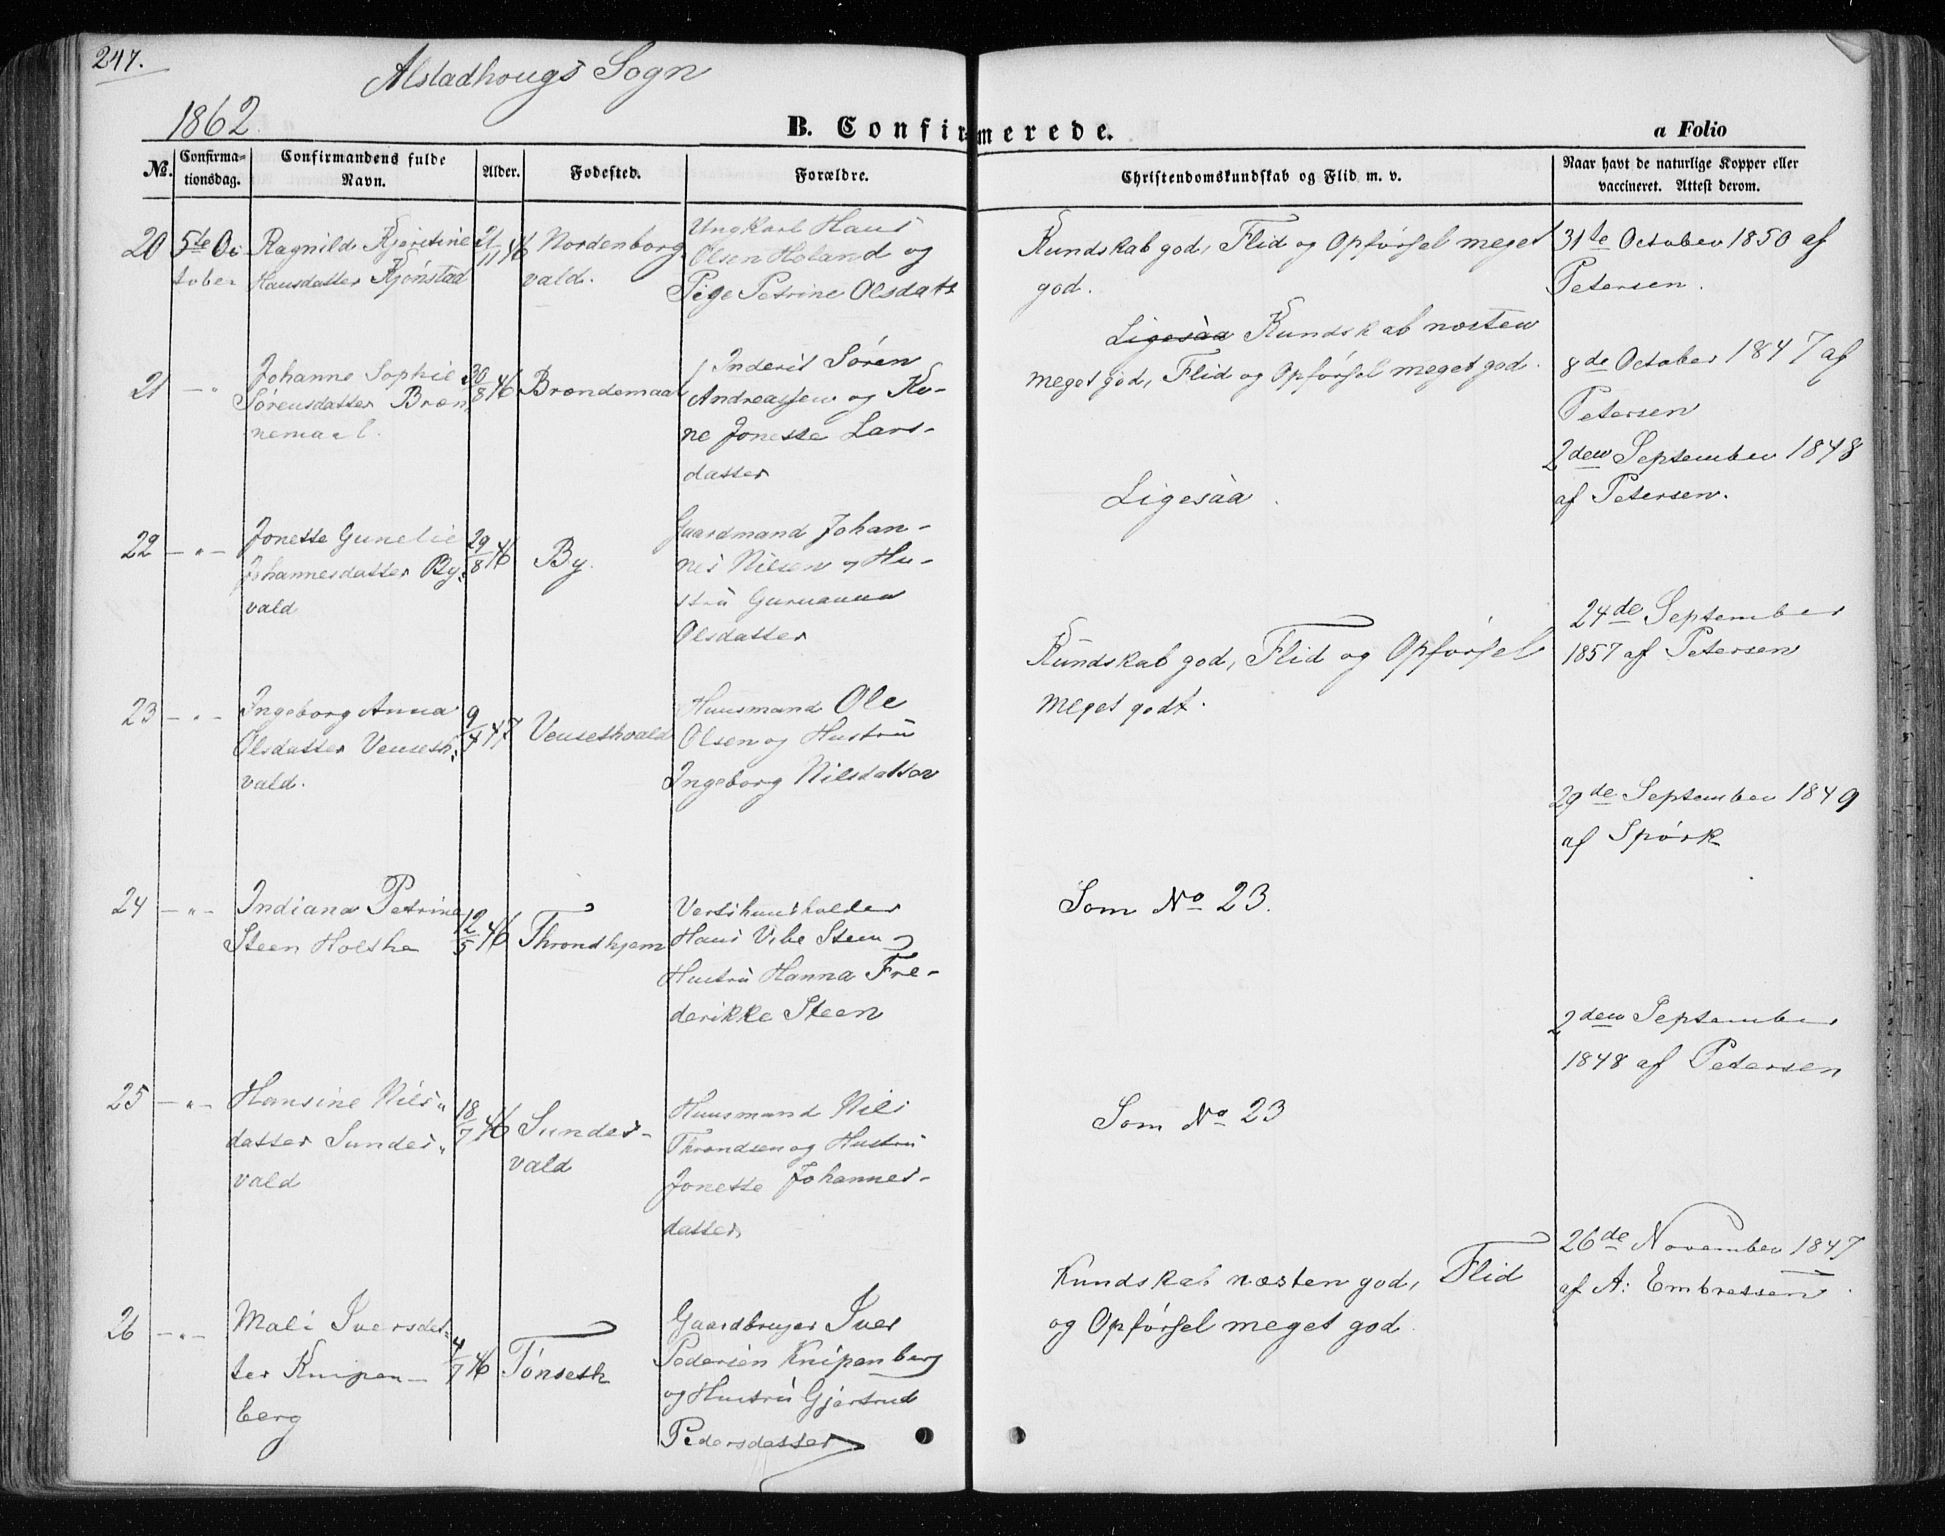 247.
Alstadhougs Sogn
1862
B. Confirmerede.
a Folio
No.
Confirma-
tionsdag.
Confirmandens fulde
Navn.
Alder.
Fødested.
Forældre.
Christendomskundskab og Flid m. v.
Naar havt de naturlige Kopper eller
vaccineret. Attest derom.
20
5te Oc
tober
Ragnild Kjerstine
Hansdatter Kjønstad
21/11 46
Nordenborg
vald.
Ungkarl Hans
Olsen Holand og
Pige Petrine Olsdatt
Kundskab god, Flid og Opførsel meget
god.
31te October 1850 af
Petersen.
21 — "
Johanne Sophie
Sørensdatter Bren
nemaal.
30/8 46
Brendemaal
Inderst Søren
Andreassen og Ko-
ne Jonette Lars-
datter
Ligesaa Kundskab næsten
meget god, Flid og Opførsel meget god.
8de October 1847 af
Petersen
22 — " —
Jonette Gunelie
Johannesdatter By-
vald
29/8 46
By.
Gaardmand Johan-
nes Nilsen og Hu-
stru Guruanna
Olsdatter
Ligesaa.
2den September 1848
af Petersen.
23 — " —
Ingeborg Anna
Olsdatter Venseth-
vald.
9/4 47
Vensethvald
Huusmand Ole
Olsen og Hustru
Ingeborg Nilsdatter
Kundskab god, Flid og Opførsel
meget godt.
24de September
1857 af Petersen
24 — " —
Indiana Petrine
Steen Holthe
12/5 46
Throndhjem
Vertshuusholder
Hans Vibe Steen og
Hustru Hanna Fre-
derikke Steen
Som No 23.
29de September 1849
af Spørk
25 — " —
Hansine Nils-
datter Sunder-
vald
18/7 46
Sunder-
vald
Huusmand Nils
Throndsen og Hustru
Jonette Johannes-
datter
Som No 23
2den September
1848 af Petersen
26 — " —
Mali Iversdat-
ter Knipen-
berg
4/7 46
Tønseth
Gaardbruger Iver
Pedersen Knipenberg
og Hustru Gjertrud
Pedersdatter
Kundskab næsten god, Flid
og Opførsel meget god.
26de November 1847
af A: Embretsen.